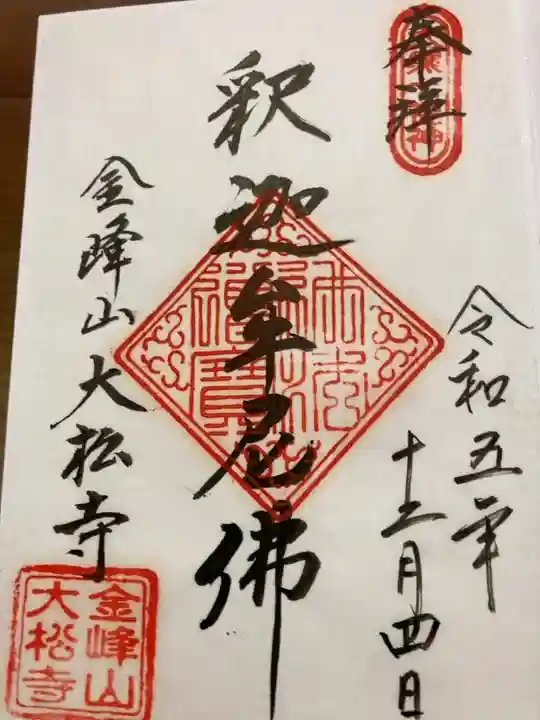 奉拝
令和五年
十二月四日
釈迦牟尼佛
金峰山大松寺
金峰山
大松寺